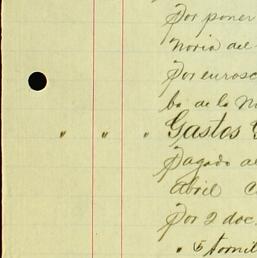 Por poner
noria del
Por
ba de la No
" " " Gastos G
Pagado a
Abril
Por 2 doc.
" 5 tornil